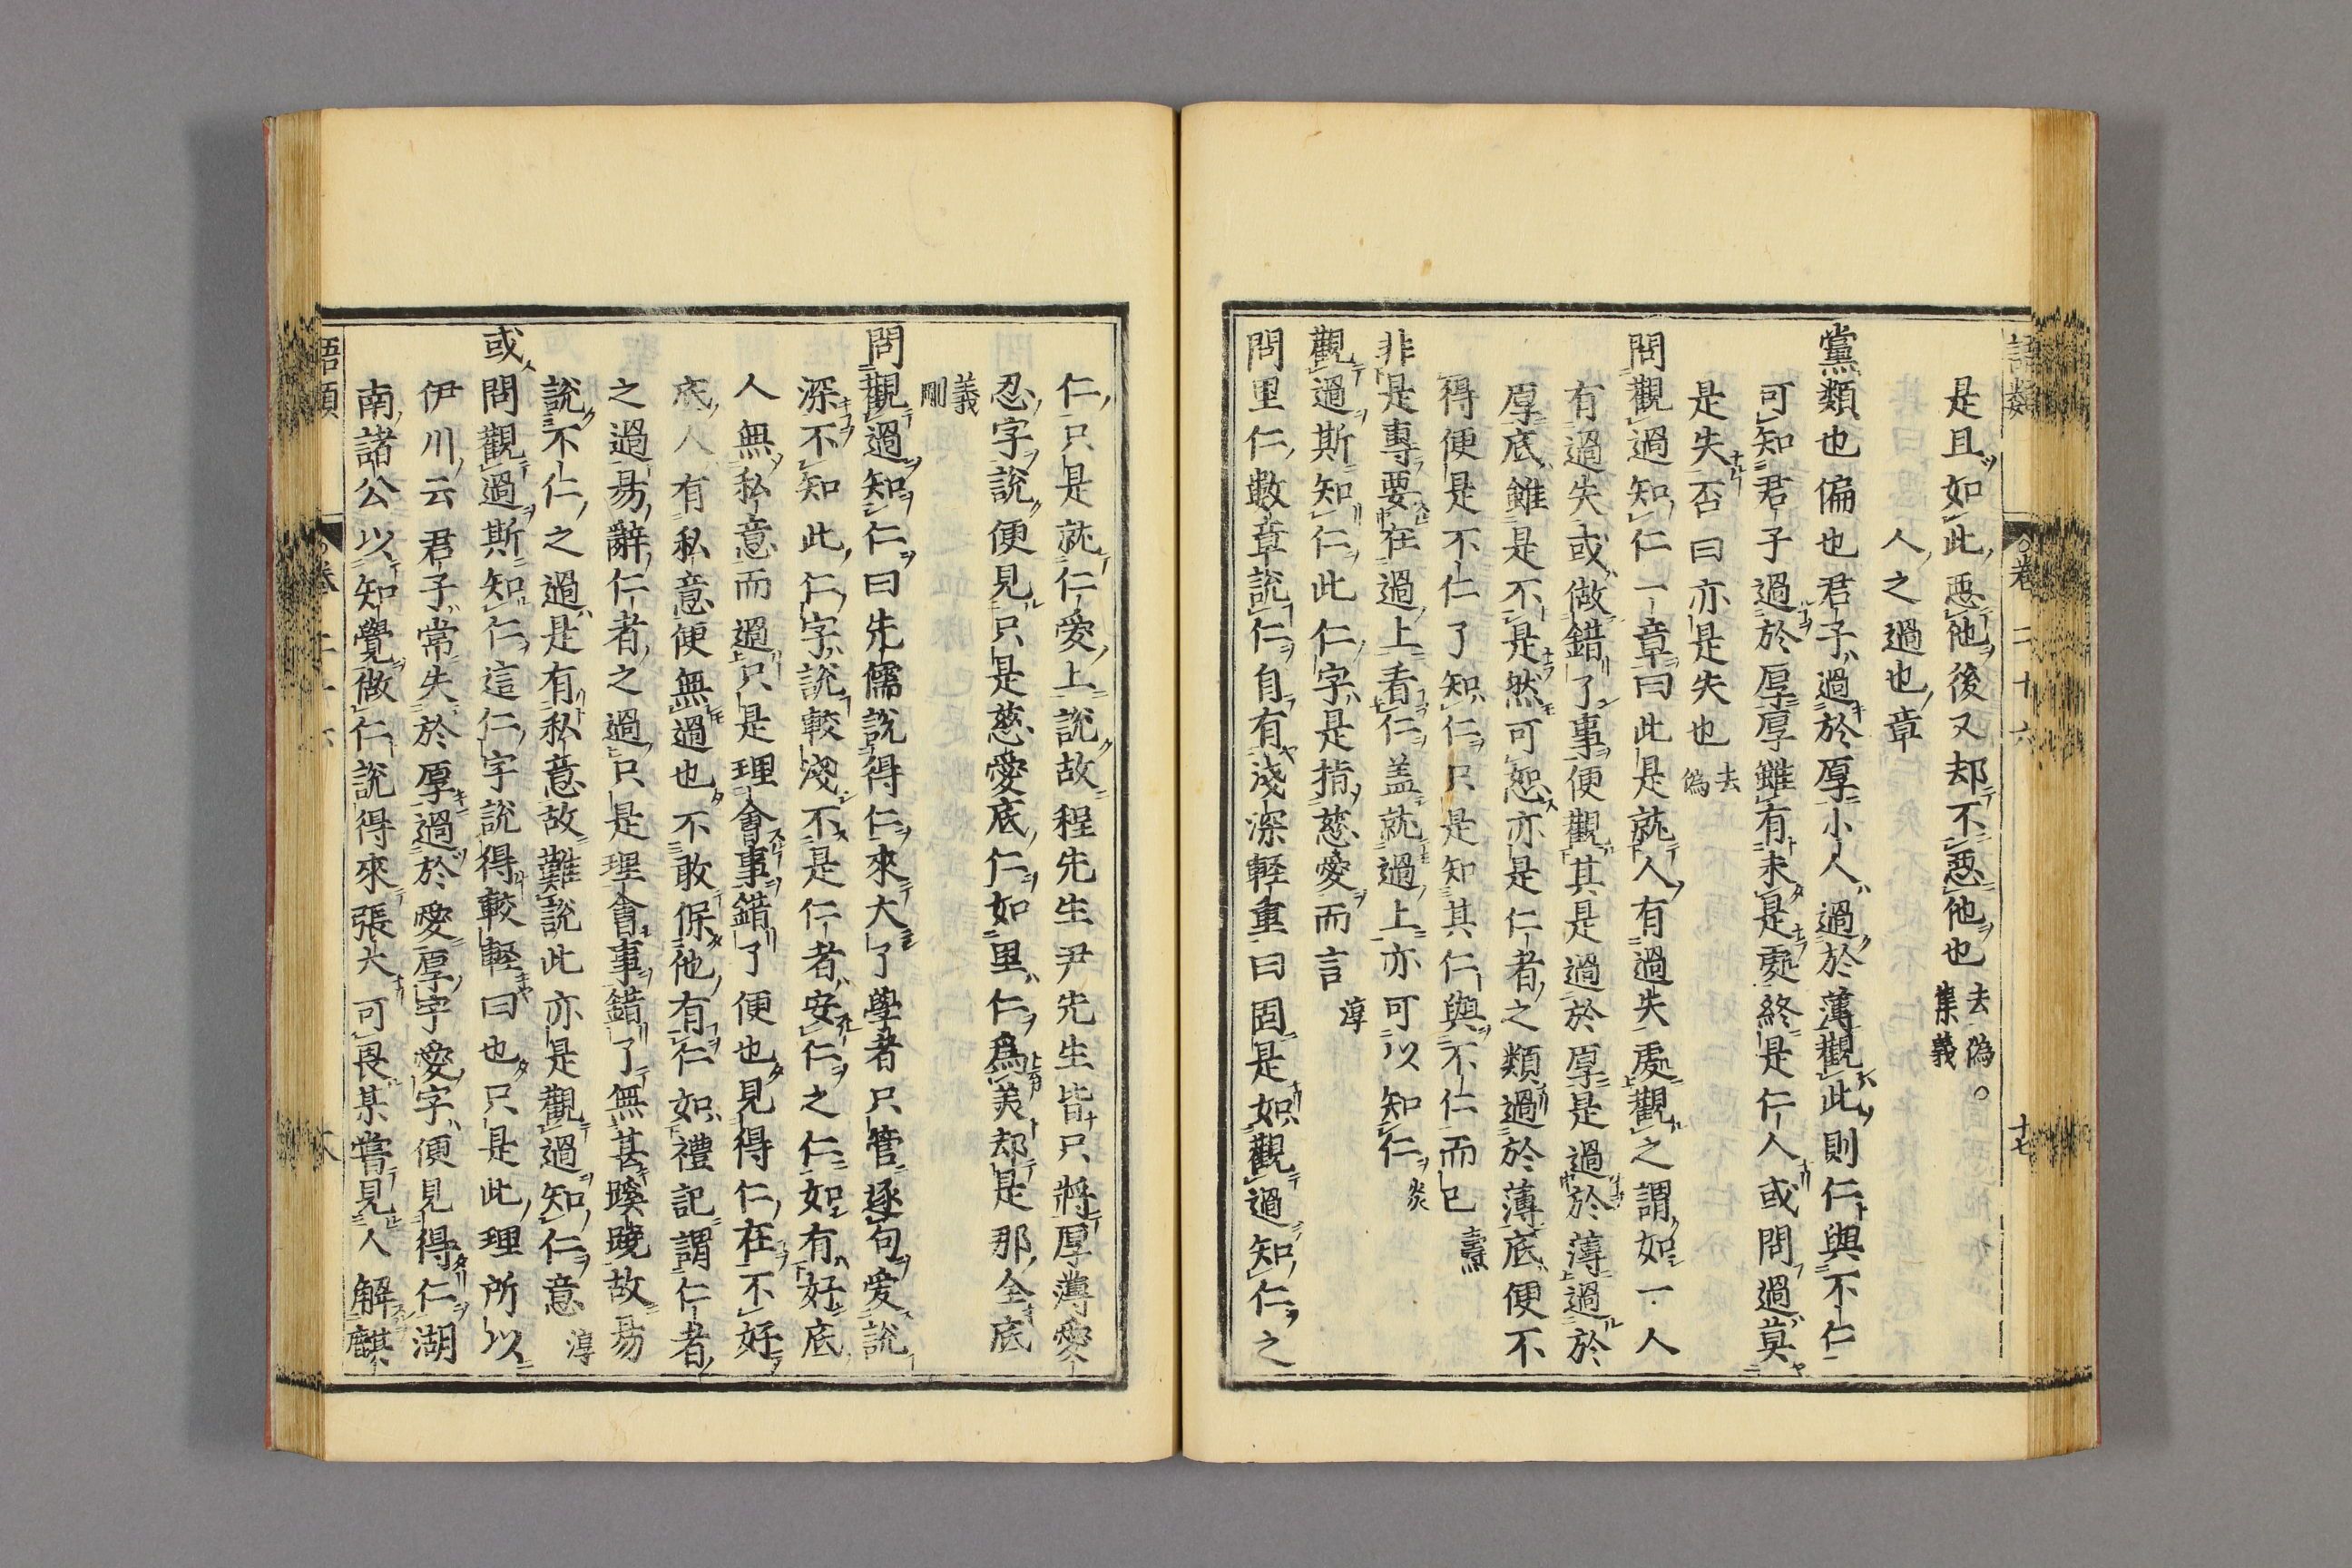 語類
卷二十六
十七
是且如此惡他後又却不惡他也去偽。集義
人之過也章
黨類也偏也君子過於厚小人過於薄觀此則仁與不仁
可知君子過於厚厚雖有未是處終是仁人或問過莫
是失否曰亦是失也去偽
問觀過知仁一章曰此是就人有過失處觀之謂如一人
有過失或做錯了事便觀其是過於厚是過於薄過於
厚底雖是不是然可恕亦是仁者之類過於薄底便不
得便是不仁了知仁只是知其仁與不仁而已燾
非是專要在過上看仁盖就過上亦可以知仁炎
觀過斯知仁此仁字是指慈愛而言淳
問里仁數章說仁自有淺深輕重曰固是如觀過知仁之
仁只是就仁愛上說故程先生尹先生皆只將厚薄愛
忍字說便見只是慈愛底仁如里仁為美却是那全底
義剛
問觀過知仁曰先儒說得仁來大了學者只管逐句愛說
深不知此仁字說較淺不是仁者安仁之仁如有好底
人無私意而過只是理會事錯了便也見得仁在不好
底人有私意便無過也不敢保他有仁如禮記謂仁者
之過易辭仁者之過只是理會事錯了無甚蹊蹺故易
說不仁之過是有私意故難說此亦是觀過知仁意淳
或問觀過斯知仁這仁字說得較輕曰也只是此理所以
伊川云君子常失於厚過於愛厚字愛字便見得仁湖
南諸公以知覺做仁說得來張大可畏某嘗見人解麒
語類